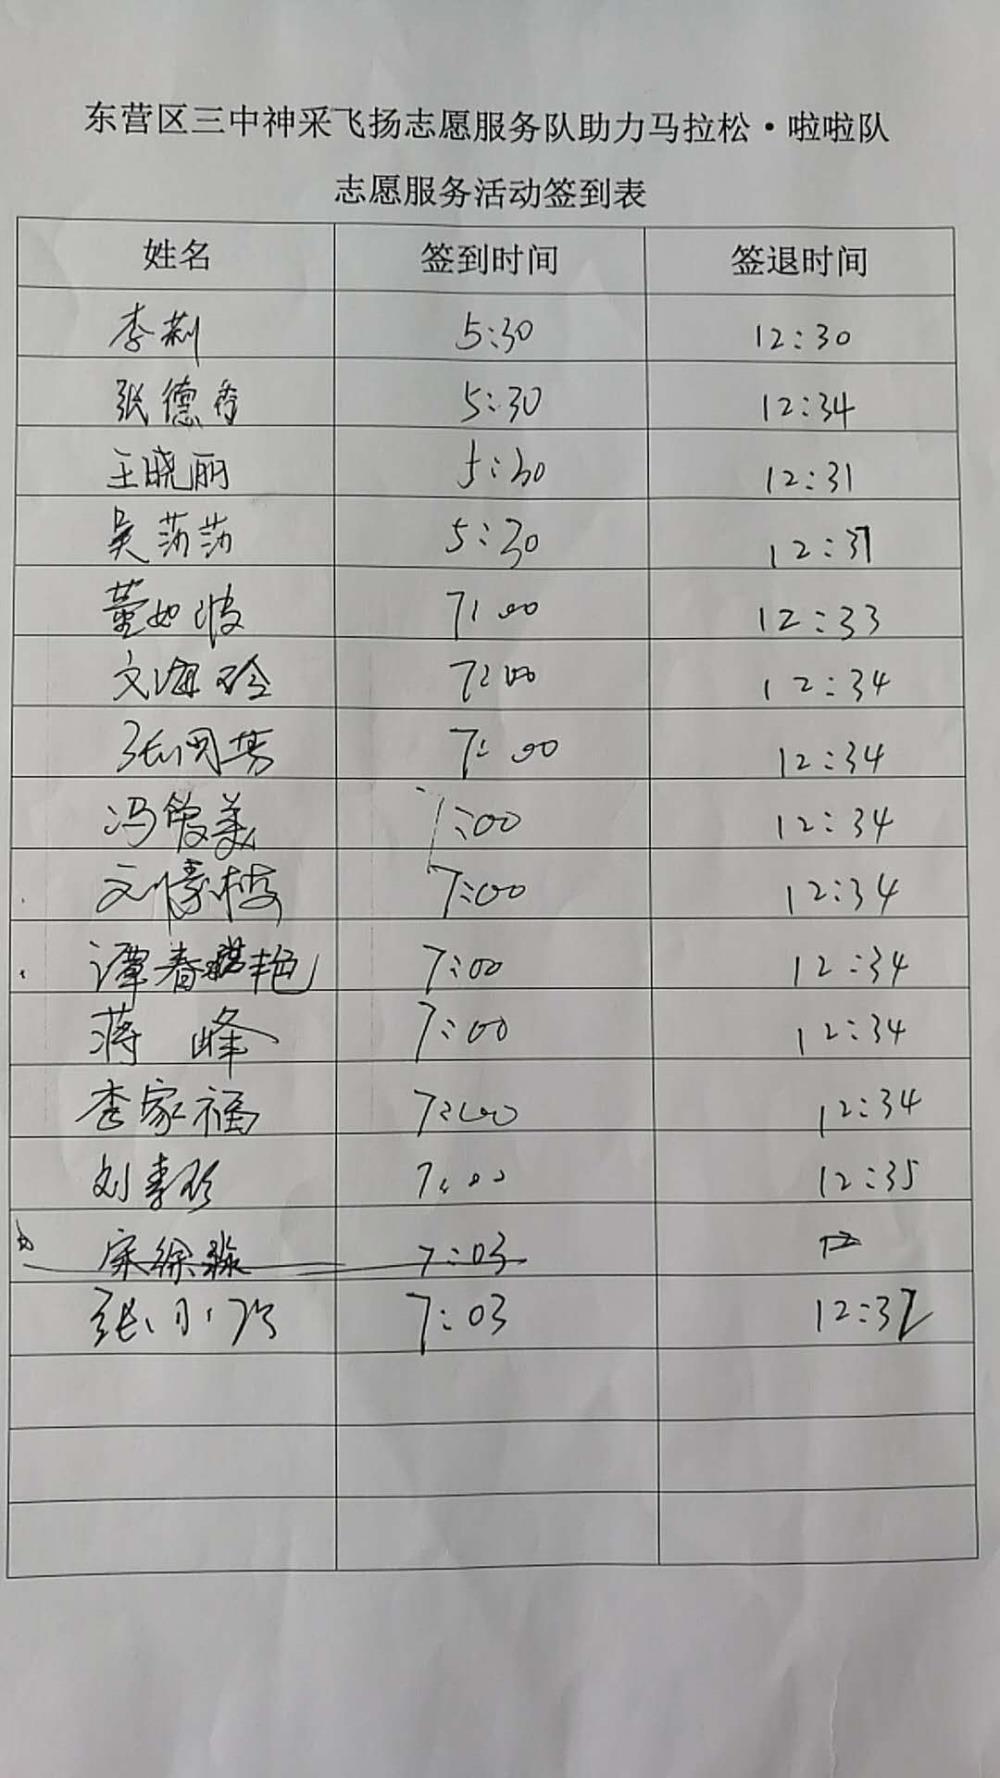 东营区三中神采飞扬志愿服务队助力马拉松·啦啦队
志愿服务活动签到表
姓名 签到时间 签退时间
李莉 5:30 12:30
张德秀 5:30 12:34
王晓丽 5:30 12:31
吴莎莎 5:30 12:31
董如波 7:00 12:33
文海玲 7:00 12:34
张同芳 7:00 12:34
冯俊美 7:00 12:34
7:00 12:34
谭春艳 7:00 12:34
蒋峰 7:00 12:34
李家福 7:00 12:34
刘春珍 7:00 12:35
宋徐淼 7:03 12
张小 7:03 12:37